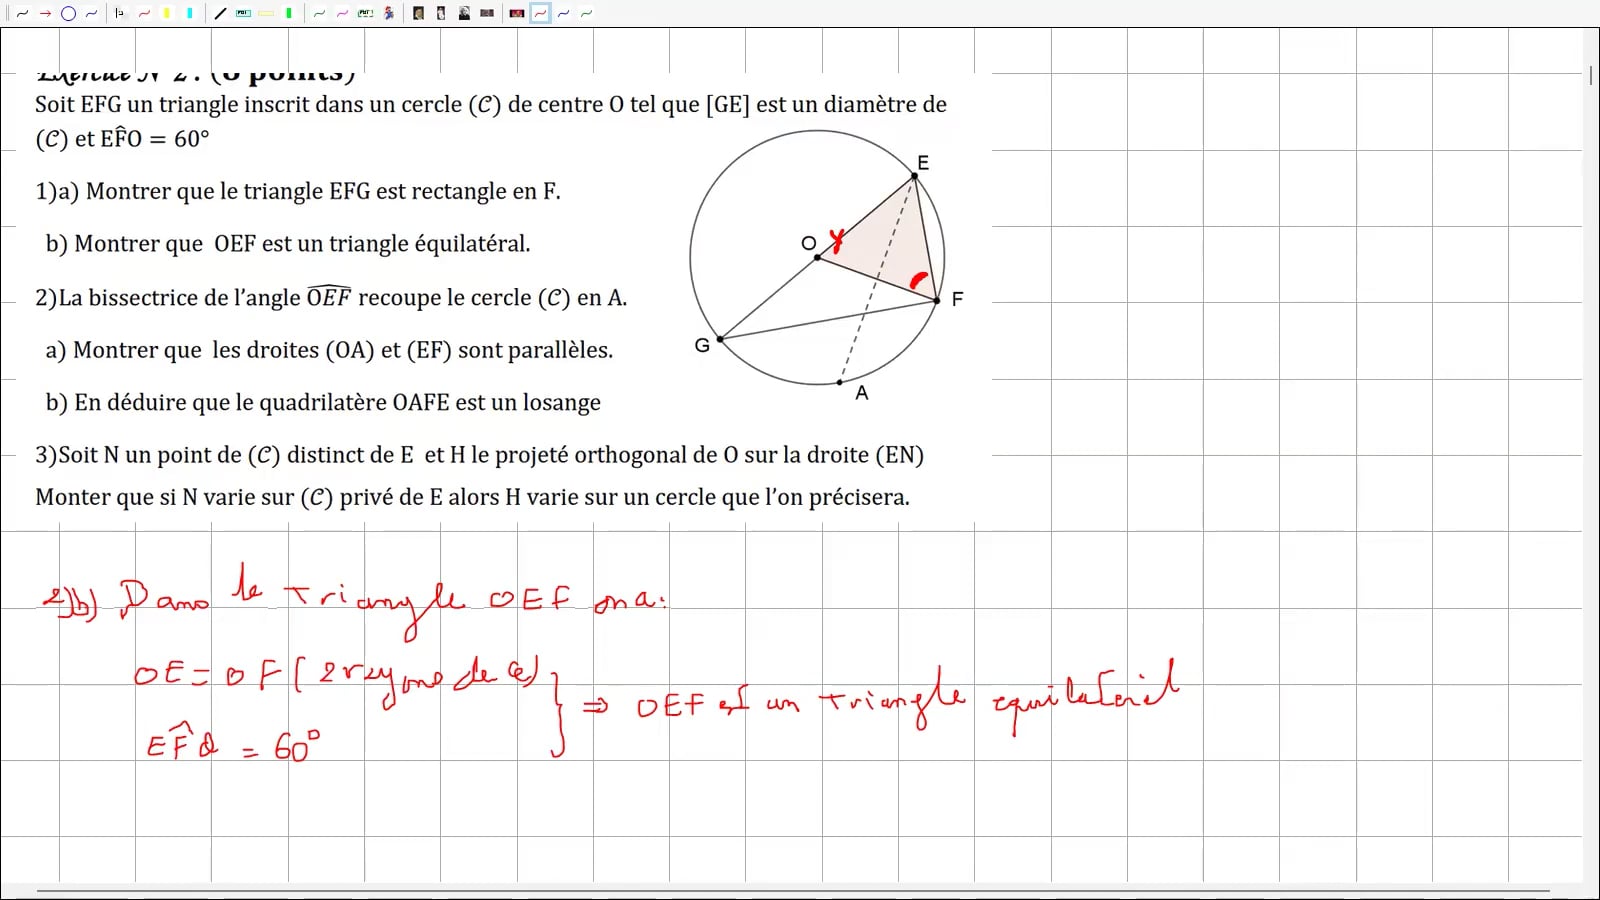 Exercice N°2 : (8 points)
Soit EFG un triangle inscrit dans un cercle (𝒞) de centre O tel que [GE] est un diamètre de
(𝒞) et EF̂O = 60°
1)a) Montrer que le triangle EFG est rectangle en F.
b) Montrer que OEF est un triangle équilatéral.
2)La bissectrice de l'angle OEF recoupe le cercle (𝒞) en A.
a) Montrer que les droites (OA) et (EF) sont parallèles.
b) En déduire que le quadrilatère OAFE est un losange
3)Soit N un point de (𝒞) distinct de E et H le projeté orthogonal de O sur la droite (EN)
Monter que si N varie sur (𝒞) privé de E alors H varie sur un cercle que l'on précisera.
E
O
F
G
A
2)b) Dans le triangle OEF on a:
OE = OF (2 rayons de 𝒞)
EF̂O = 60°
} ⇒ OEF est un triangle equilateral